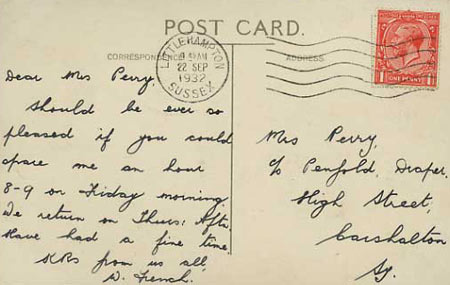 POST CARD.
CORRESPONDENCE
ADDRESS
LITTLEHAMPTON
AM
22 SEP
1932
SUSSEX
1 ONE PENNY 1
Dear Mrs Perry,
Should be ever so
pleased if you could
spare me an hour
8-9 on Friday morning
We return on Thurs: Aft.
Have had a fine time
KRs from us all,
W. French.
Mrs Perry,
c/o Penfold, Draper,
High Street,
Carshalton
Sy.